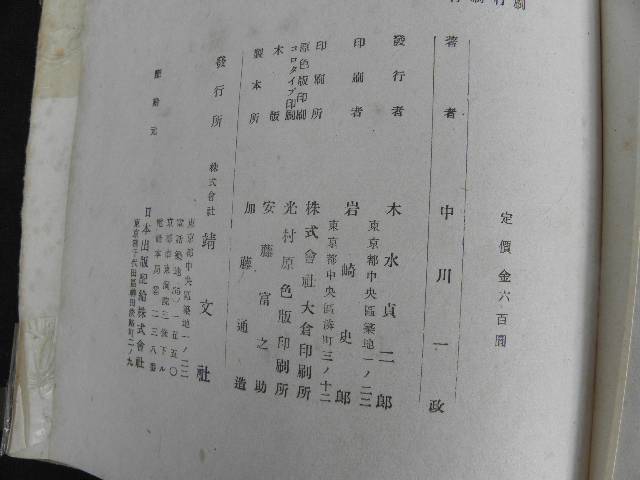 定價金六百圓
著者 中川一政
發行者 木水貞二郎
東京都中央區築地一ノ二二
印刷者 岩崎史郎
東京都中央區湊町三ノ十二
印刷所 株式會社大倉印刷所
原色版印刷
コロタイプ印刷 光村原色版印刷所
木版 安藤富之助
製本所 加藤通造
發行所 株式會社 靖文社
東京都中央區築地一ノ二二
電話築地55ノ一五五〇
日本出版配給株式會社